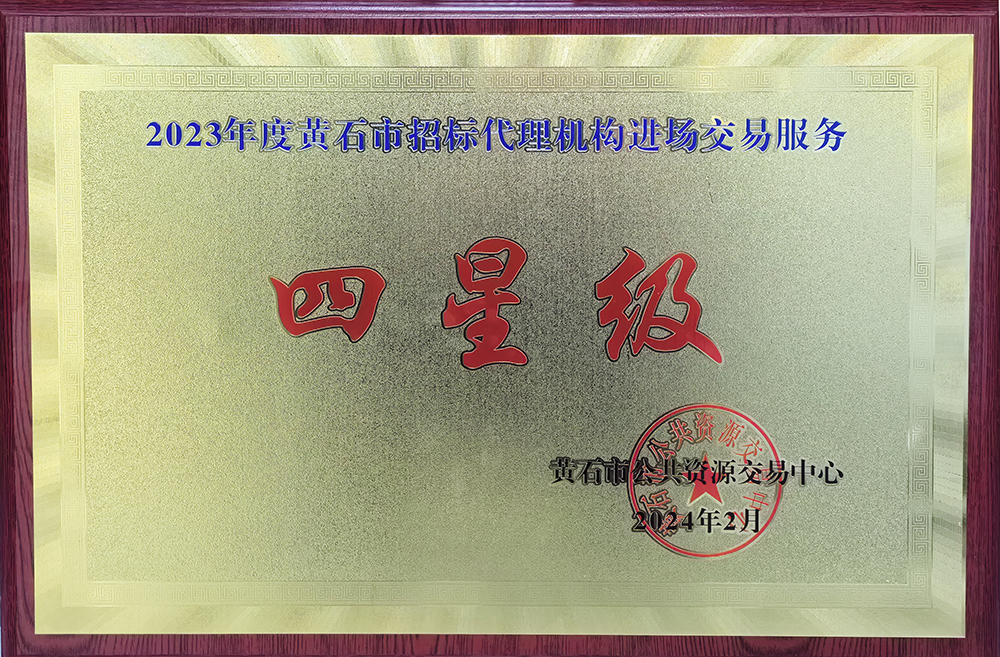 2023年度黄石市招标代理机构进场交易服务
四星级
黄石市公共资源交易中心
2024年2月